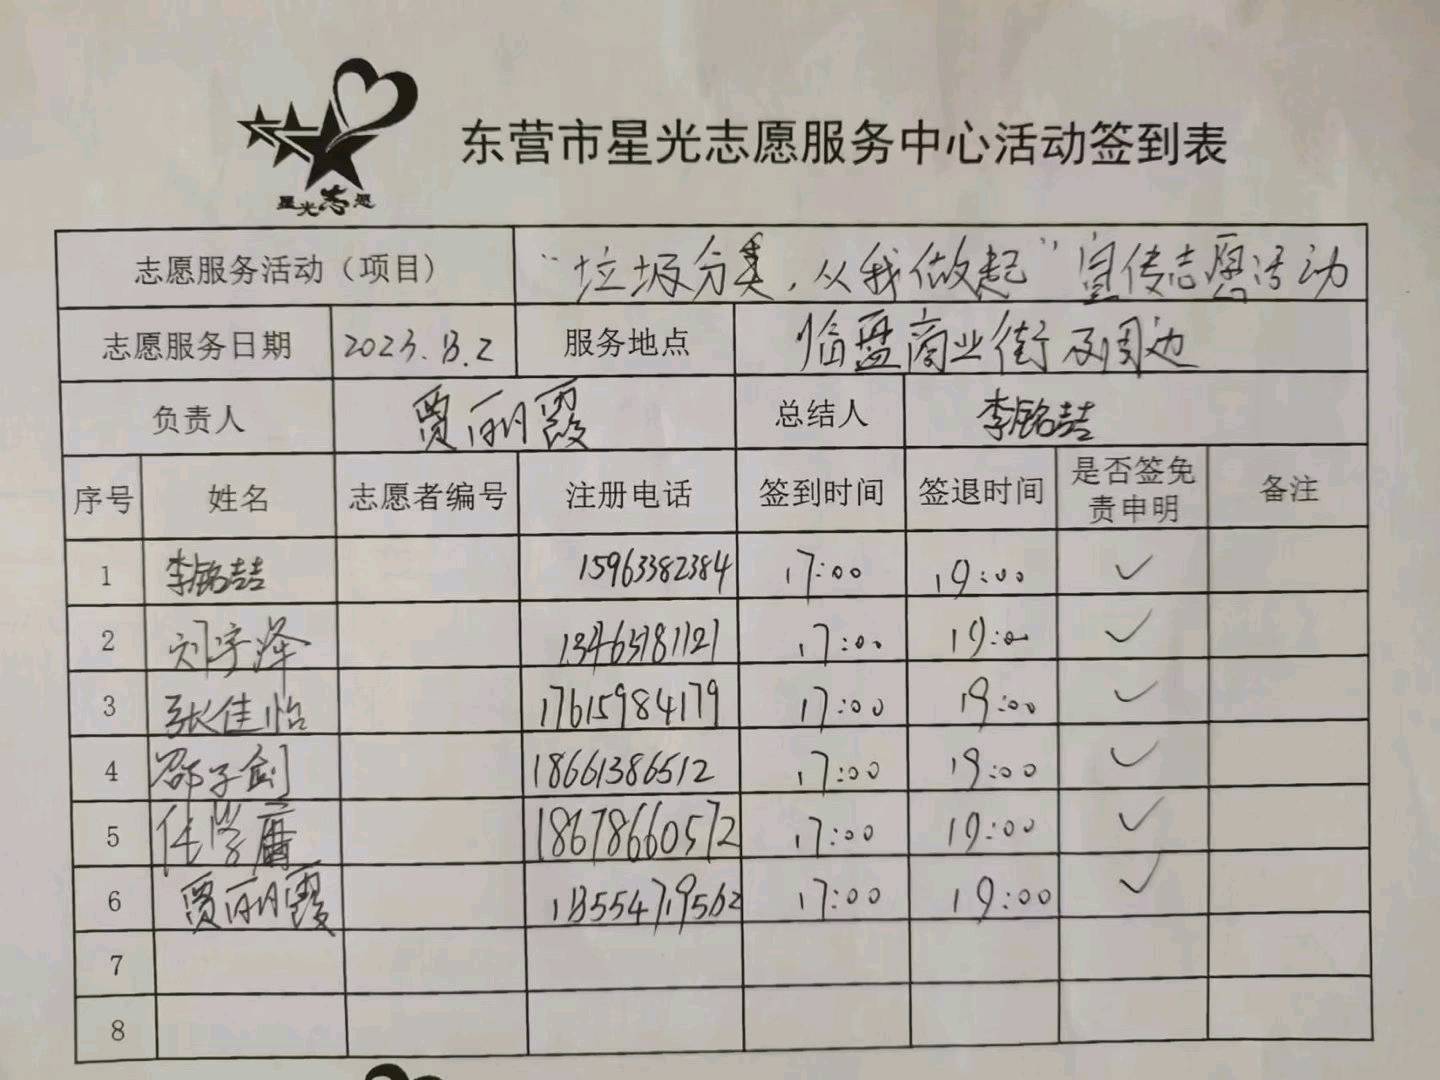 星光志愿
东营市星光志愿服务中心活动签到表
志愿服务活动（项目） “垃圾分类，从我做起”宣传志愿活动
志愿服务日期 服务地点 临盘商业街及周边
负责人 贾丽霞 总结人 李铭喆
序号 姓名 志愿者编号 注册电话 签到时间 签退时间 是否签免责申明 备注
1 李铭喆 15963382384 17:00 19:00 ✓
2 刘宇泽 17:00 19:00 ✓
3 张佳怡 17615984179 17:00 19:00 ✓
4 邵子剑 18661386512 17:00 19:00 ✓
5 任学庸 18678660572 17:00 19:00 ✓
6 贾丽霞 17:00 19:00 ✓
7
8